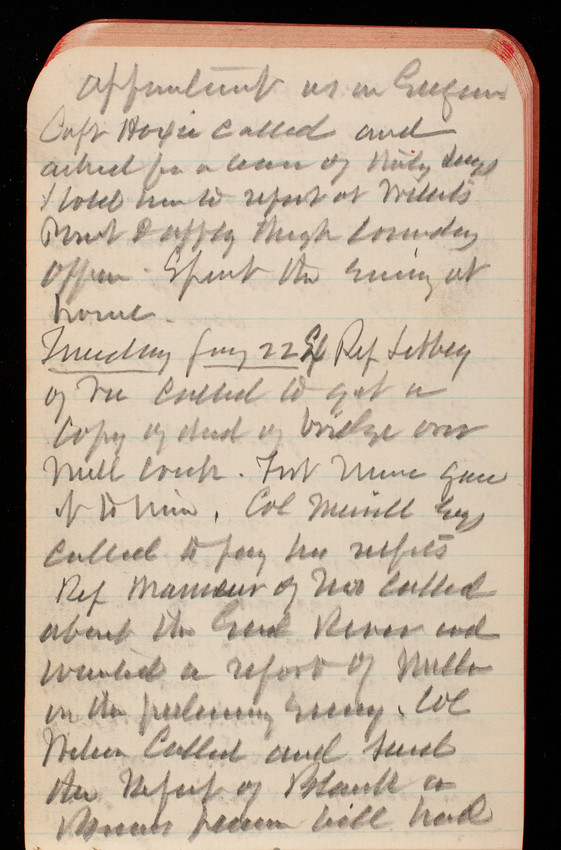 appointment as an Engineer
Capt Hoxie called and
asked for a leave of thirty days
I told him to report at Willets
Point & apply through Comndg
Officer. Spent the evening at
home.
Tuesday Jany 22 Ex Rep Libbey
of Me called to get a
copy of deed of bridge over
Mill Creek. Fort gave
it to him. Col Merrill Engs
called to pay his respects
Rep Mansur of Mo called
about the Grand River and
wanted a report of Miller
on the preliminary Survey. Col
Wilson called and said
the report of Blank a
pension bill had